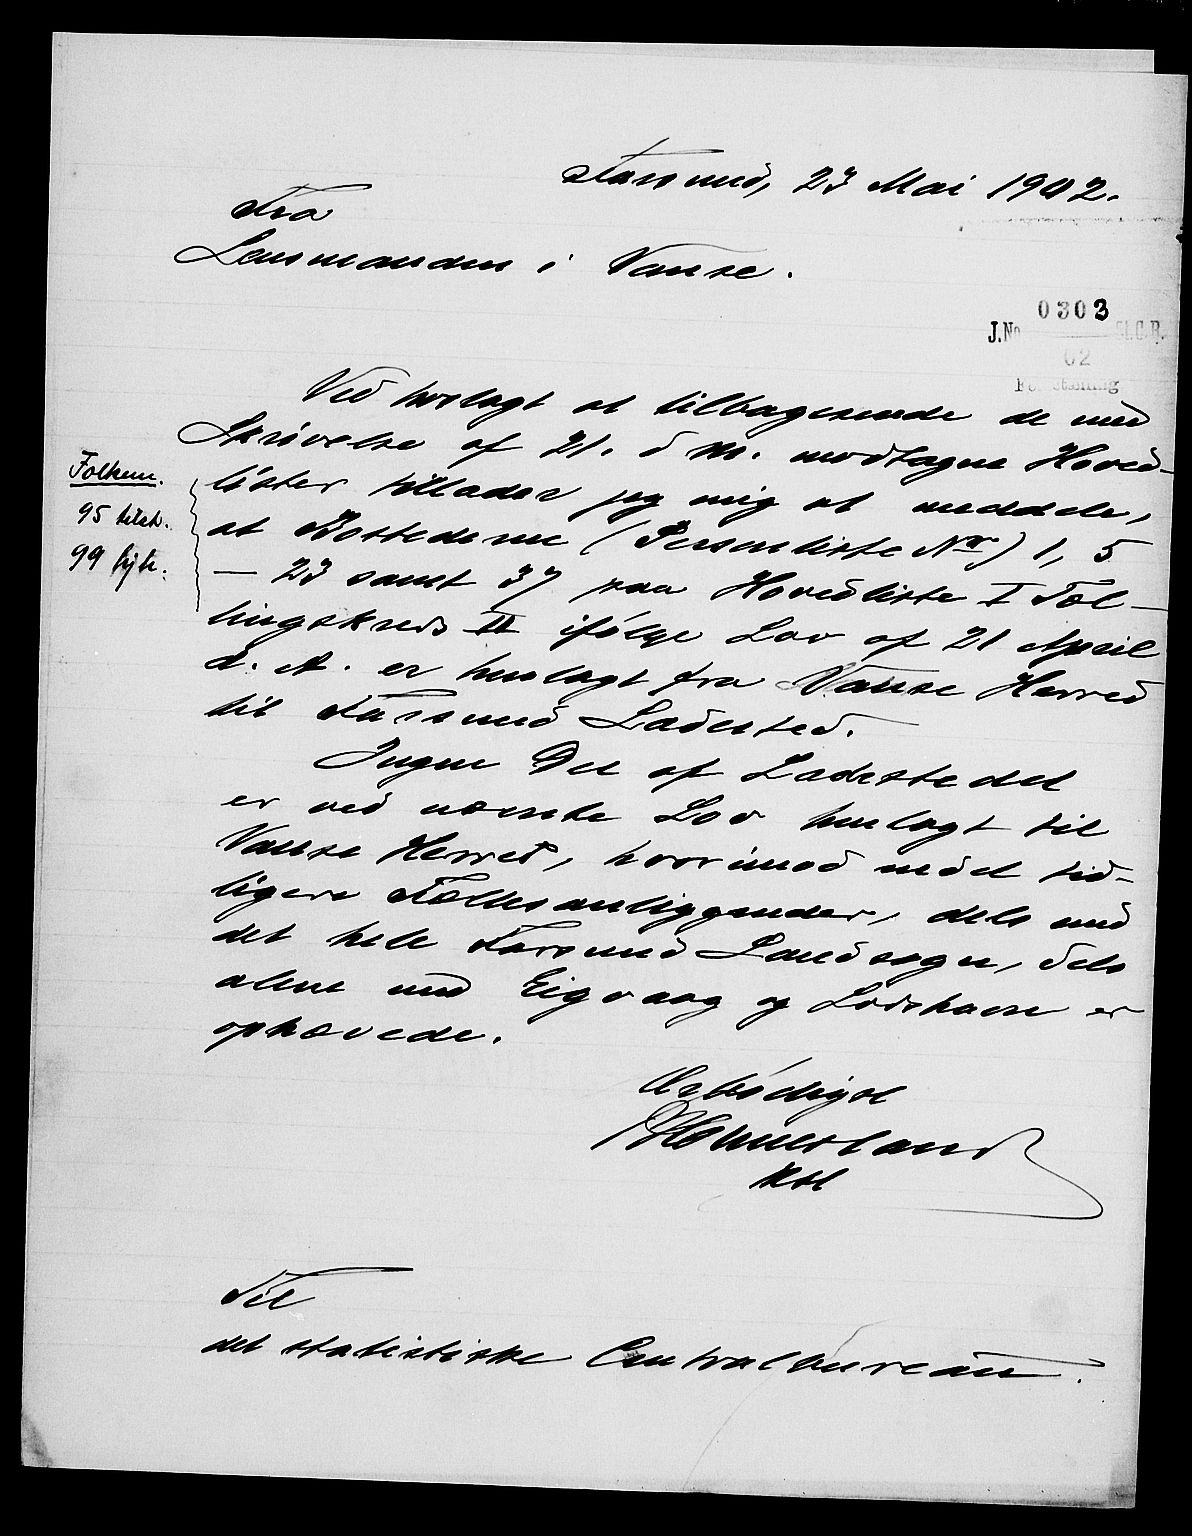 Farsund, 23 Mai 1902.
Fra
Lensmanden i Vanse.
0303
J.No St.C.B.
02
Folkem.
95 tilst.
99 hjh.
Ved hoslagt at tilbagesende de med
Skrivelse af 21. d. M. modtagne Hoved-
lister tillader jeg mig at meddele,
at Bostederne (Personliste No) 1, 5
— 23 samt 37 paa Hovedliste I Tæl-
lingskreds II ifølge Lov af 21 April
d. A. er henlagt fra Vanse Herred
til Farsund Ladested.
Ingen Del af Ladestedet
er ved nævnte Lov henlagt til
Vanse Herred, hvorimod endel tid-
ligere Fællesanliggender, dels med
det hele Farsund Landsogn, dels
alene med Eigvaag og Loshavn er
ophævede.
Ærbødigst
Kst
Til
det statistiske Centralbureau.